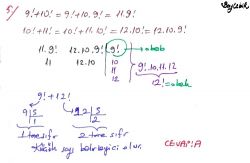 5/ 9!+10! = 9!+10.9! = 11.9!
10!+11! = 10!+11.10! = 12.10! = 12.10.9!
11.9! 12.10.9! 9! → obeb
11 12.10 10
11
12
9!.10.11.12
12! = okek
9! + 12!
9 5
1
12 5
2
1 tane sıfır 2 tane sıfır
küçük sayı belirleyici olur.
CEVAP: A